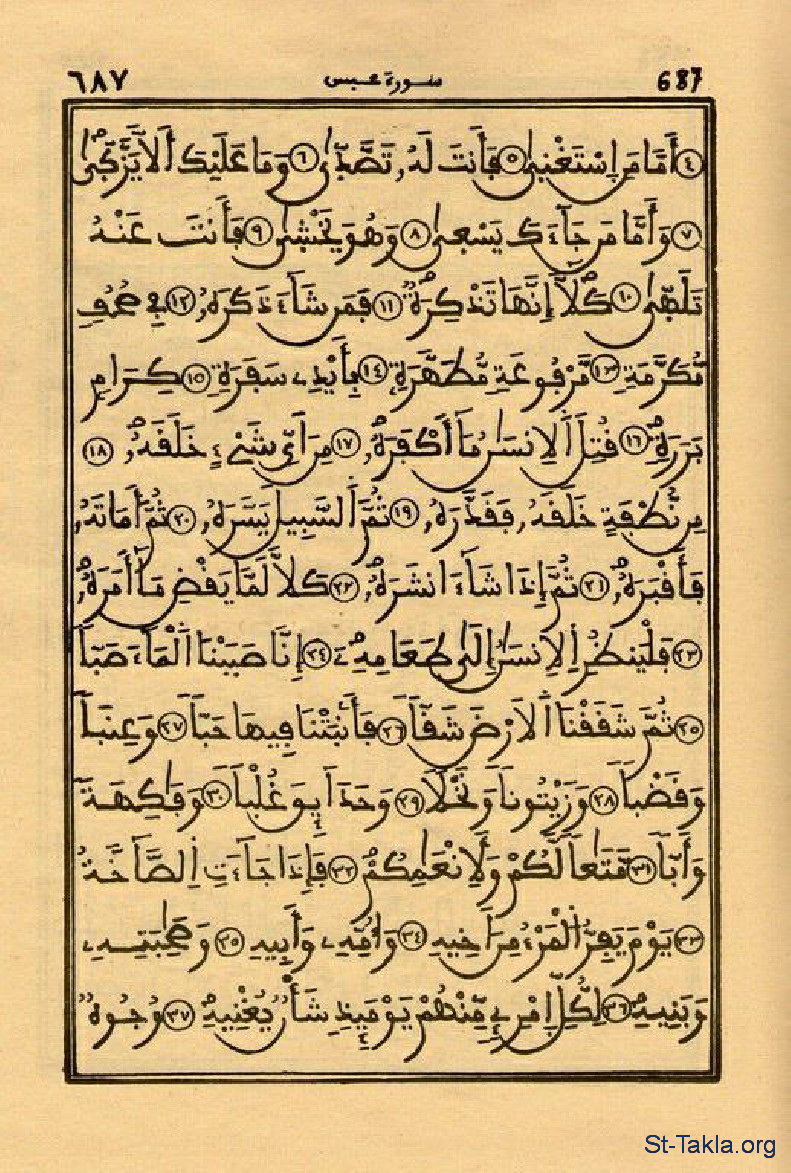 ٦٨٧ سورة عبس 687
٤ أَمَّا مَنِ اِسْتَغْنىٰ ٥ فَأَنتَ لَهُ, تَصَّدّىٰ ٦ وَمَا عَلَيْكَ أَلاَّ يَزَّكّىٰ
٧ وَأَمَّا مَن جَآءَكَ يَسْعىٰ ٨ وَهُوَ يَخْشىٰ ٩ فَأَنتَ عَنْهُ
تَلَهّىٰ ١٠ كَلَّآ إِنَّهَا تَذْكِرَةٌ ١١ فَمَن شَآءَ ذَكَرَهُ, ١٢ فِے صُحُفٍ
مُّكَرَّمَةٍ ١٣ مَّرْفُوعَةٍ مُّطَهَّرَةٍ ١٤ بِأَيْدِے سَفَرَةٍ ١٥ كِرَامٍ
بَرَرَةٍ ١٦ قُتِلَ اَلاِنسَٰنُ مَآ أَكْفَرَهُ, ١٧ مِنَ اَيِّ شَيْءٍ خَلَقَهُ, ١٨
مِن نُّطْفَةٍ خَلَقَهُ, فَقَدَّرَهُ, ١٩ ثُمَّ اَلسَّبِيلَ يَسَّرَهُ, ٢٠ ثُمَّ أَمَاتَهُ,
فَأَقْبَرَهُ, ٢١ ثُمَّ إِذَا شَآءَ انشَرَهُ, ٢٢ كَلاَّ لَمَّا يَقْضِ مَآ أَمَرَهُ,
٢٣ فَلْيَنظُرِ اِلاِنسَٰنُ إِلَىٰ طَعَامِهِۦٓ ٢٤ إِنَّا صَبَبْنَا اَلْمَآءَ صَبّاً
٢٥ ثُمَّ شَقَقْنَا اَلاَرْضَ شَقّاً ٢٦ فَأَنۢبَتْنَا فِيهَا حَبّاً ٢٧ وَعِنَباً
وَقَضْباً ٢٨ وَزَيْتُوناً وَنَخْلاً ٢٩ وَحَدَآئِقَ غُلْباً ٣٠ وَفَٰكِهَةً
وَأَبّاً ٣١ مَّتَٰعاً لَّكُمْ وَلِأَنْعَٰمِكُمْ ٣٢ فَإِذَا جَآءَتِ اِلصَّآخَّةُ
٣٣ يَوْمَ يَفِرُّ اُلْمَرْءُ مِنَ اَخِيهِ ٣٤ وَأُمِّهِۦ وَأَبِيهِ ٣٥ وَصَٰحِبَتِهِۦ
وَبَنِيهِ ٣٦ لِكُلِّ اِمْرِےءٍ مِّنْهُمْ يَوْمَئِذٍ شَأْنٌ يُغْنِيهِ ٣٧ وُجُوهٌ
St-Takla.org